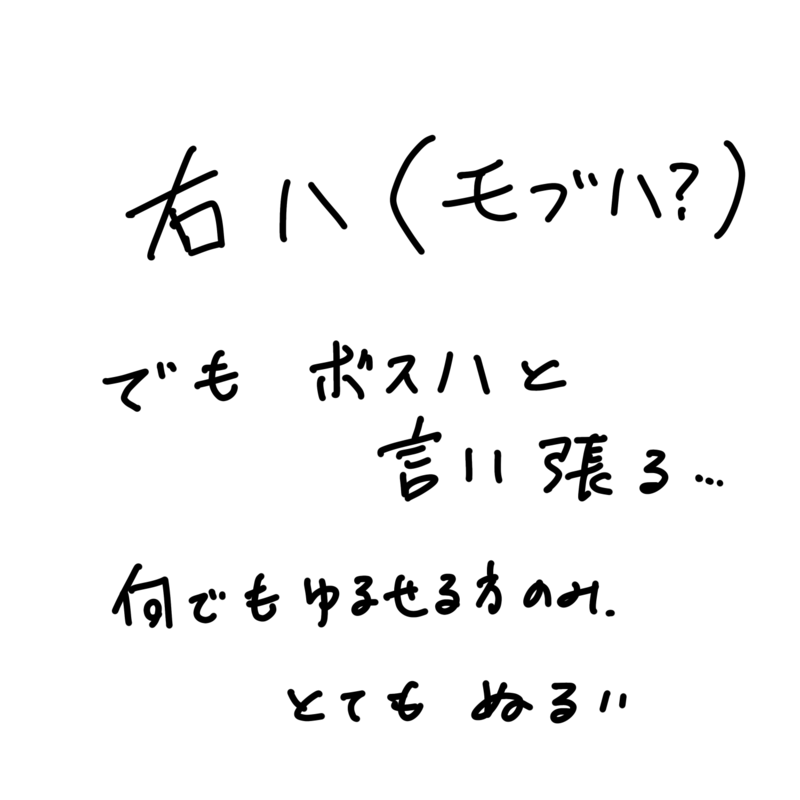 右ハ(モブハ?)
でも ボスハと
言い張る...
何でもゆるせる方のみ.
とても ぬるい